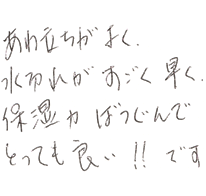 あわ立ちがよく、
水切れがすごく早く、
保湿力ばつぐんで
とっても良い!!です